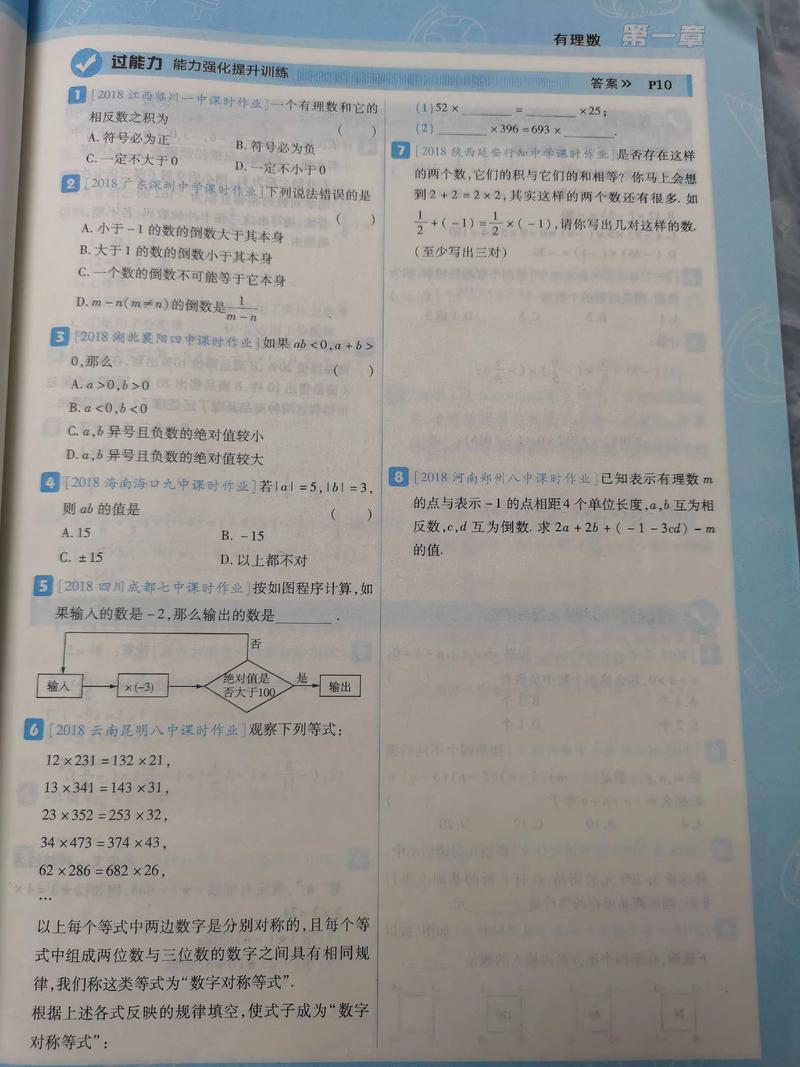 有理数 第一章
过能力 能力强化提升训练
答案 P10
1 [2018 江西临川一中课时作业]一个有理数和它的
相反数之积为 ( )
A. 符号必为正 B. 符号必为负
C. 一定不大于 0 D. 一定不小于 0
2 [2018 广东深圳中学课时作业]下列说法错误的是
( )
A. 小于 -1 的数的倒数大于其本身
B. 大于 1 的数的倒数小于其本身
C. 一个数的倒数不可能等于它本身
D. m-n(m≠n)的倒数是 1/(m-n)
3 [2018 湖北襄阳四中课时作业]如果 ab<0,a+b>
0,那么 ( )
A. a>0,b>0
B. a<0,b<0
C. a,b 异号且负数的绝对值较小
D. a,b 异号且负数的绝对值较大
4 [2018 海南海口九中课时作业]若|a|=5,|b|=3,
则 ab 的值是 ( )
A. 15 B. -15
C. ±15 D. 以上都不对
5 [2018 四川成都七中课时作业]按如图程序计算,如
果输入的数是 -2,那么输出的数是________.
否
输入 ×(-3) 绝对值是 是 输出
否大于100
6 [2018 云南昆明八中课时作业]观察下列等式:
12×231=132×21,
13×341=143×31,
23×352=253×32,
34×473=374×43,
62×286=682×26,
…
以上每个等式中两边数字是分别对称的,且每个等
式中组成两位数与三位数的数字之间具有相同规
律,我们称这类等式为“数字对称等式”.
根据上述各式反映的规律填空,使式子成为“数字
对称等式”:
(1)52×________=________×25;
(2)________×396=693×________.
7 [2018 陕西延安行知中学课时作业]是否存在这样
的两个数,它们的积与它们的和相等?你马上会想
到 2+2=2×2,其实这样的两个数还有很多. 如
1/2+(-1)=1/2×(-1),请你写出几对这样的数.
(至少写出三对)
8 [2018 河南郑州八中课时作业]已知表示有理数 m
的点与表示 -1 的点相距 4 个单位长度,a,b 互为相
反数,c,d 互为倒数. 求 2a+2b+(-1-3cd)-m
的值.